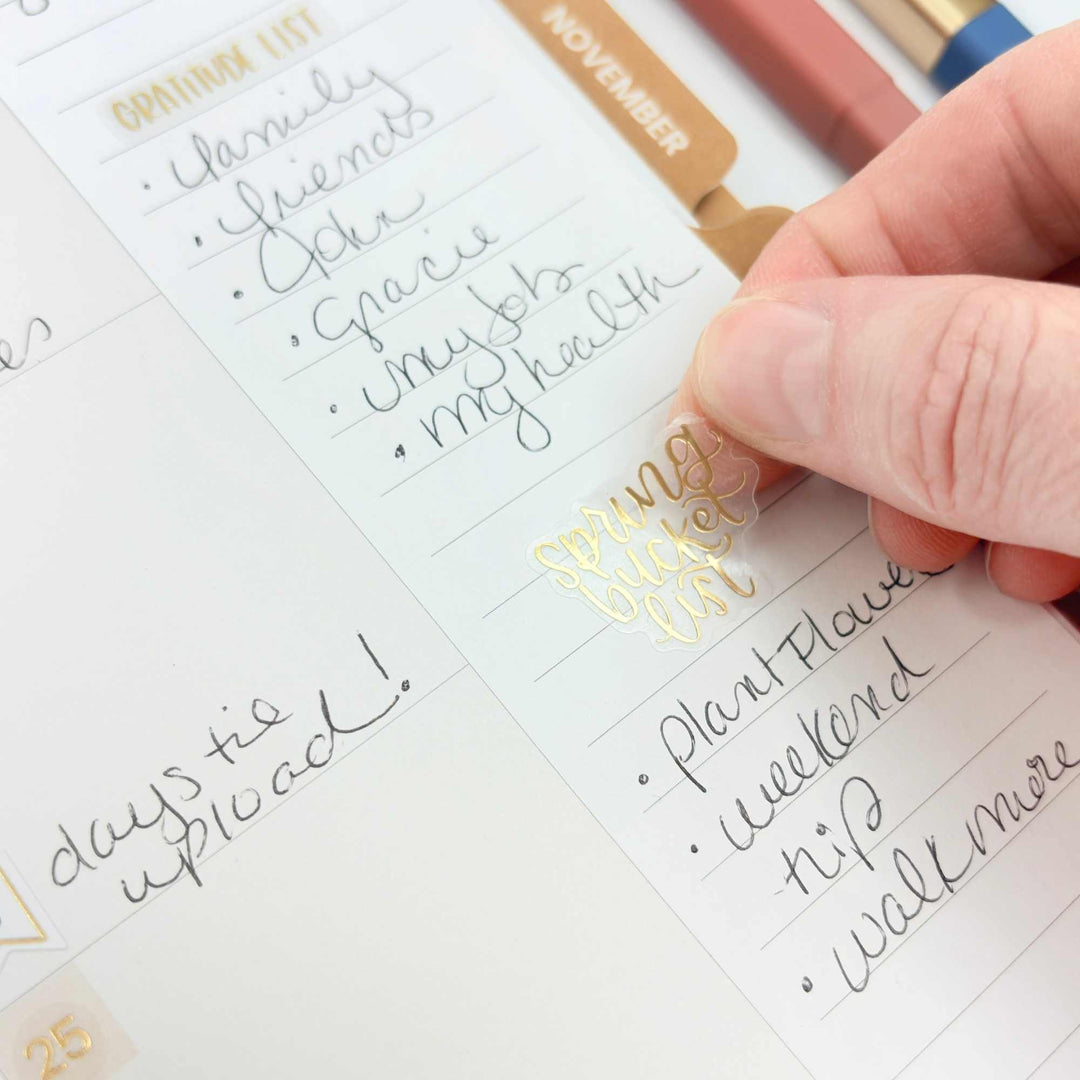 GRATITUDE LIST
• family
• friends
• John
• Gracie
• my job
• my health
NOVEMBER
spring
bucket
list
• plant Flowe
• weekend
trip
• walk more
days til
upload!
25